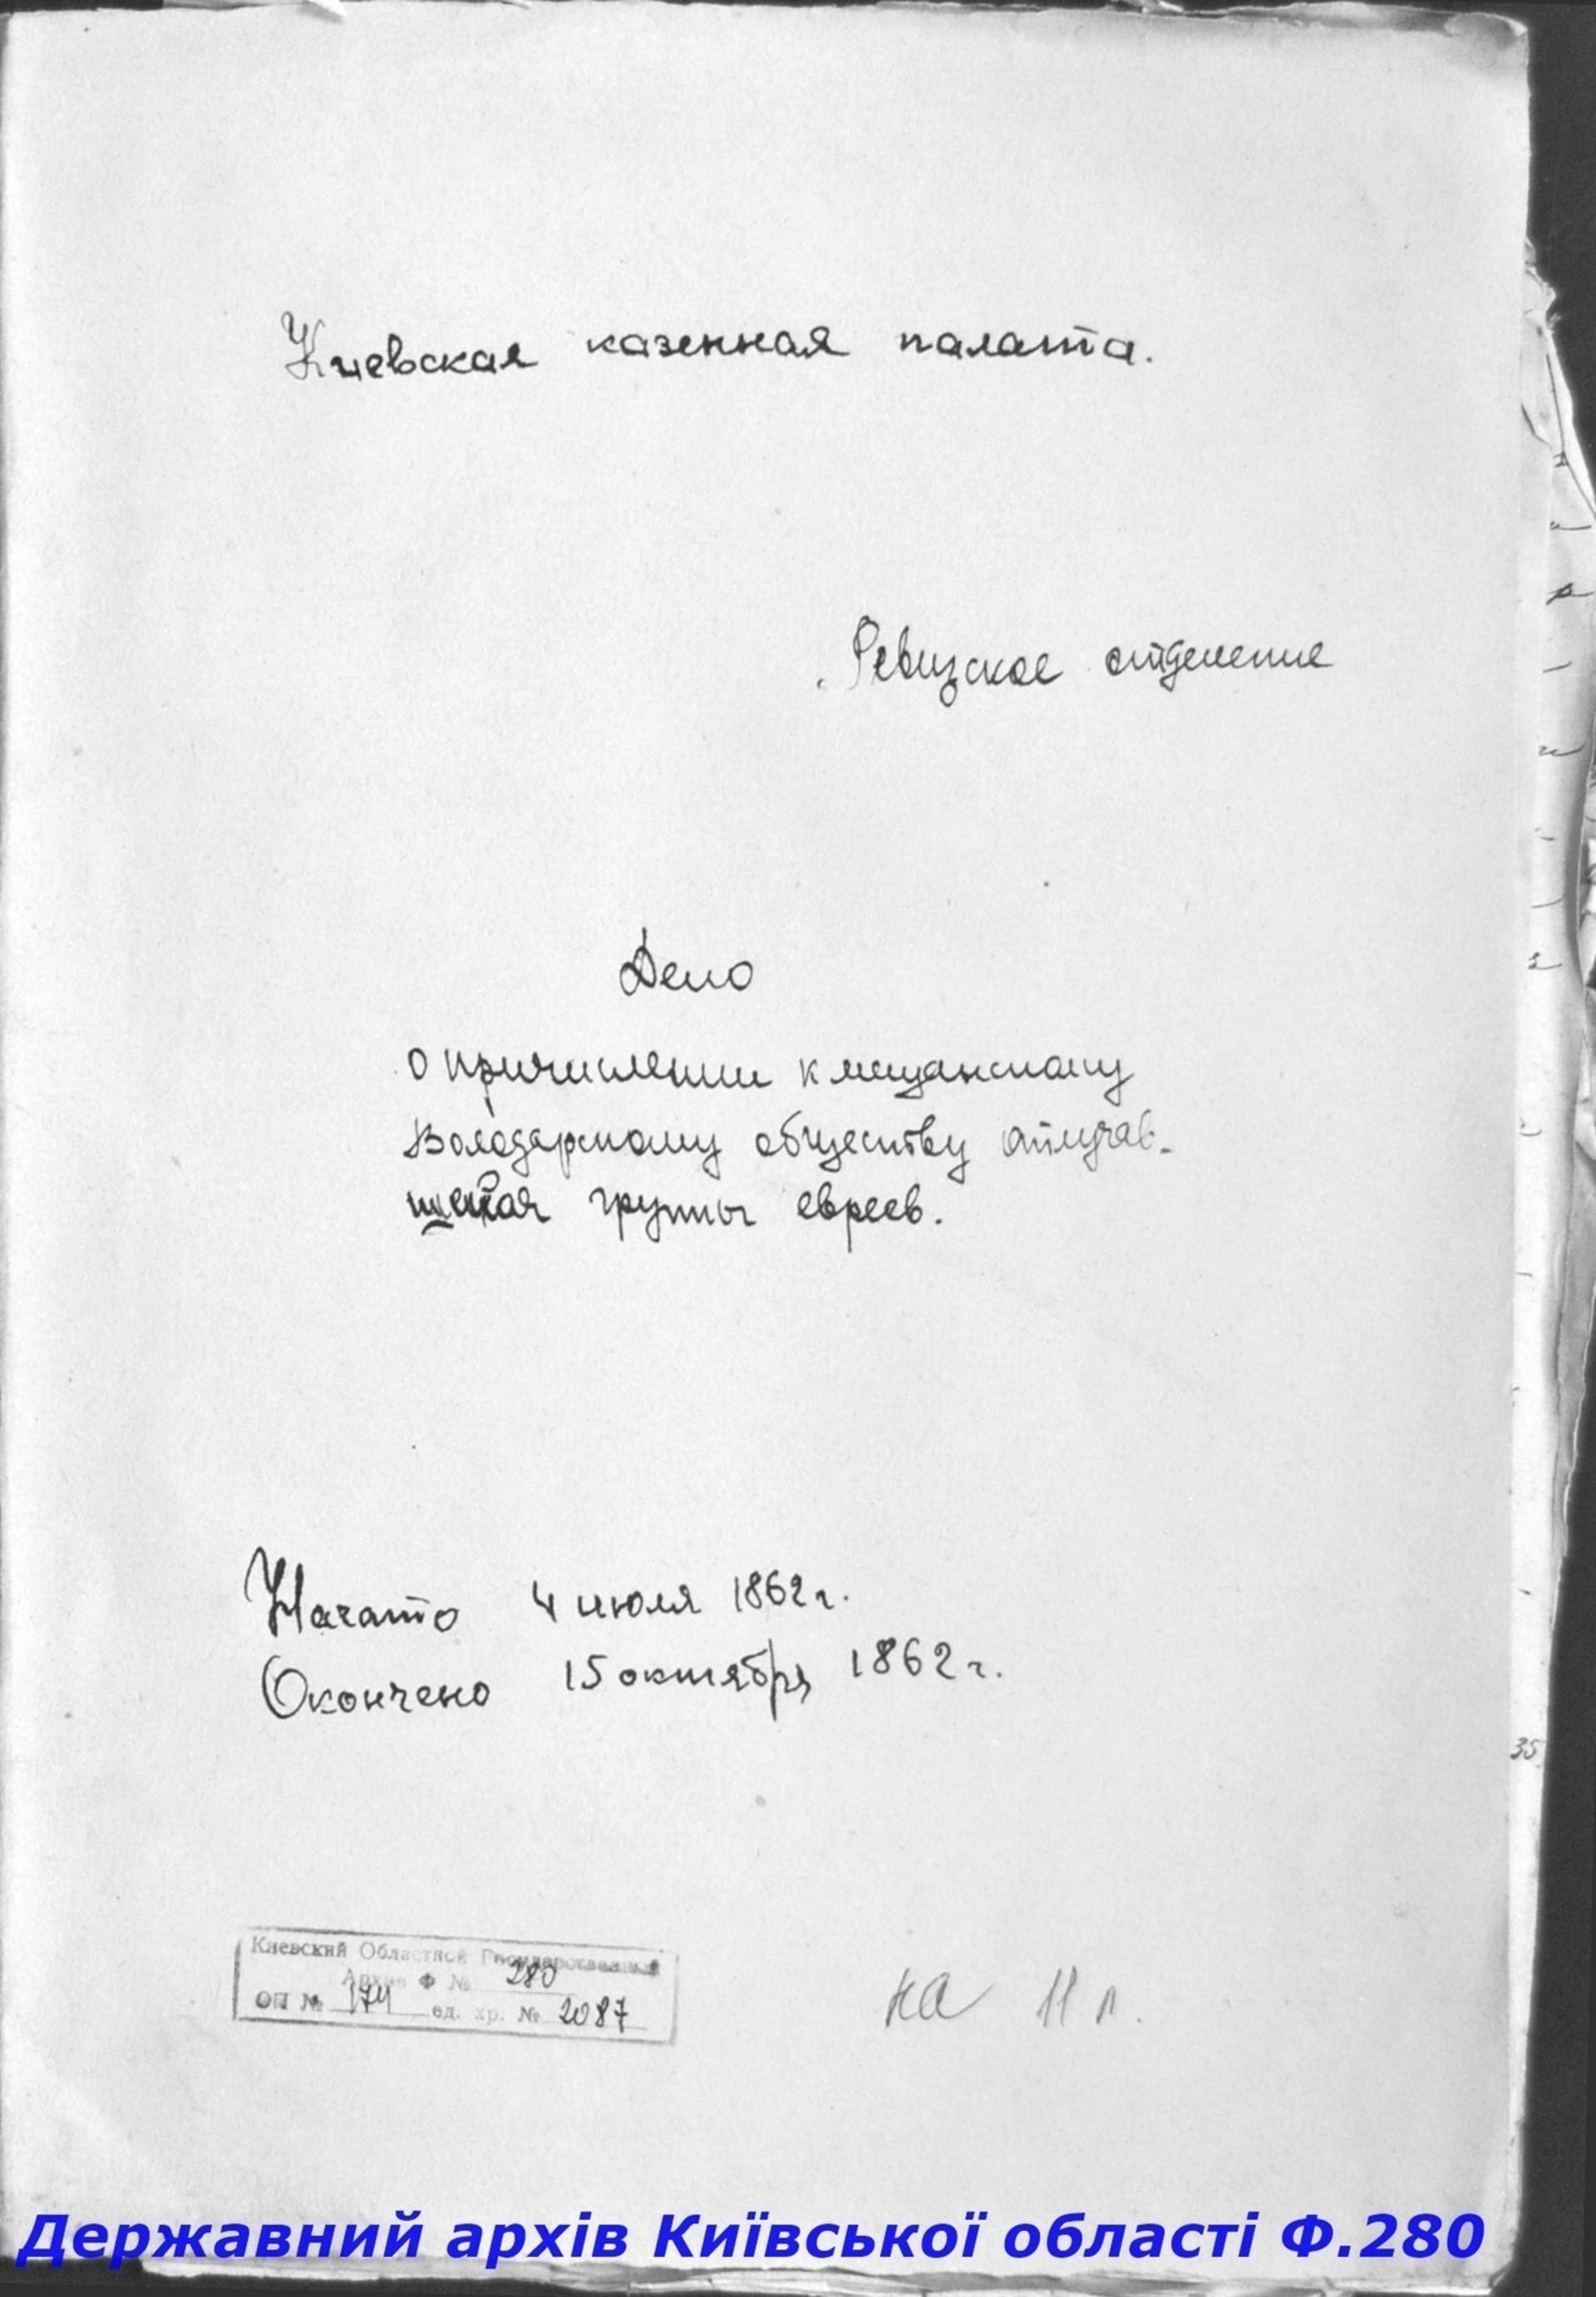 Киевская казенная палата.
Ревизское отделение
Дело
о причислении к мещанскому
Володарскому обществу отлучав-
шейся группы евреев.
Начато 4 июля 1862 г.
Окончено 15 октября 1862 г.
Киевский Областной Государственный
Архив Ф № 280
ОП № 174 ед. хр. № 2087
на 11 л.
35
Державний архів Київської області Ф.280